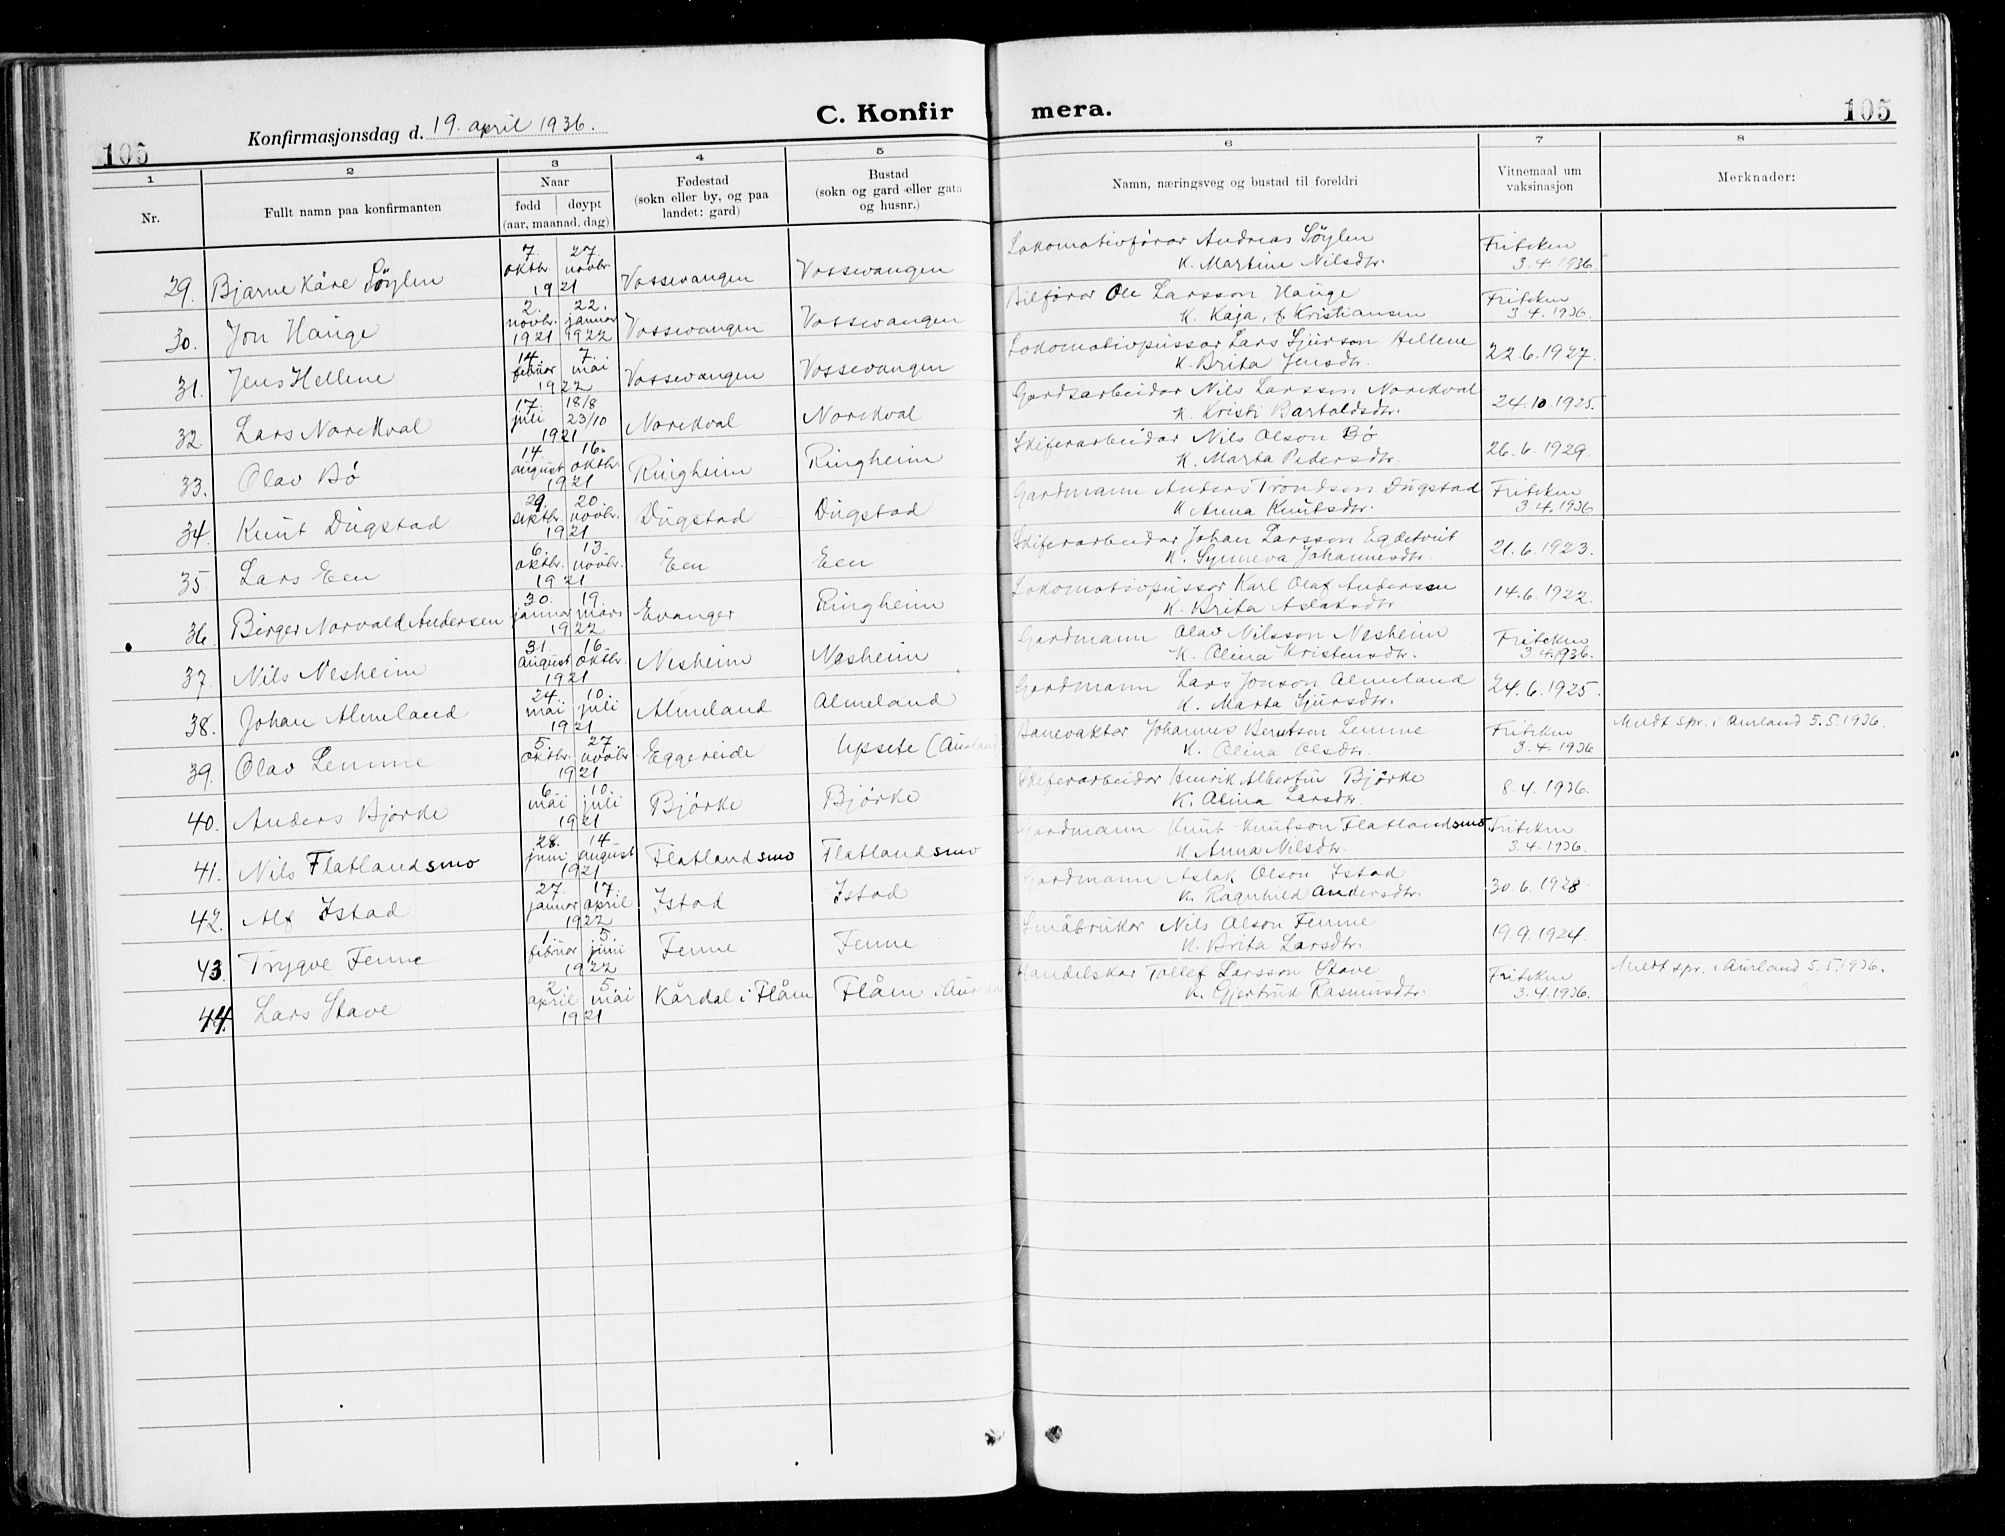 105
Konfirmasjonsdag d. 19. april 1936.
C. Konfirmera.
105
1 2 3 4 5 6 7 8
Nr.
Fullt namn paa konfirmanten
Naar
fødd døypt
(aar, maanad, dag)
Fødestad
(sokn eller by, og paa
landet: gard)
Bustad
(sokn og gard eller gata
og husnr.)
Namn, næringsveg og bustad til foreldri
Vitnemaal um
vaksinasjon
Merknader:
29. Bjarne Kåre Söylen 7. oktbr. 27. novbr. 1921 Vossevangen Vossevangen Lokomotivförar Andreas Söylen Friteken
K. Martine Nilsdtr. 3.4.1936
30. Jon Hauge 2. novbr. 1921 22. januar 1922 Vossevangen Vossevangen Bilförar Ole Larsson Hauge Friteken
K. Kaja, f. Kristiansen 3.4.1936.
31. Jens Hellene 14. februar 7. mai 1922 Vossevangen Vossevangen Lokomotivpussar Lars Sjurson Hellene 22.6.1927.
K. Brita Jensdtr.
32. Lars Norekval 17. juli 18/8 23/10 1921 Norekval Norekval Gardsarbeidar Nils Larsson Norekval 24.10.1925.
K. Kristi Bartoldsdtr.
33. Olav Bö 14. august 16. oktbr. 1921 Ringheim Ringheim Skiferarbeidar Nils Olson Bö 26.6.1929.
K. Marta Pedersdtr.
34. Knut Dugstad 29. oktbr. 20. novbr. 1921 Dugstad Dugstad Gardmann Anders Trondson Dugstad Friteken
K. Anna Knutsdtr. 3.4.1936
35. Lars Een 6. oktbr. 13. novbr. 1921 Een Een Skiferarbeidar Johan Larsson Egdetveit 21.6.1923.
K. Synneva Johannesdtr.
36. Birger Norvald Andersen 30. januar 19. mars 1922 Evanger Ringheim Lokomotivpussar Karl Olaf Andersen 14.6.1922.
K. Brita Aslaksdtr.
37. Nils Nesheim 31. august 16. oktbr. 1921 Nesheim Nesheim Gardmann Olav Nilsson Nesheim Friteken
K. Olina Kristensdtr. 3.4.1936.
38. Johan Almeland 24. mai 10. juli 1921 Almeland Almeland Gardmann Lars Jonson Almeland 24.6.1925.
K. Marta Sjursdtr.
39. Olav Lemme 5. oktbr. 27. novbr 1921 Eggereide Upsete (Aurland Banevaktar Johannes Berntson Lemme Friteken Meldt spr. i Aurland 5.5.1936.
K. Olina Olsdtr. 3.4.1936
40. Anders Bjørke 6. mai 10. juli 1921 Bjørke Bjørke Skiferarbeidar Henrik Albertin Bjørke 8.4.1936.
K. Alina Larsdtr.
41. Nils Flatlandsmo 28. juni 14. august 1921 Flatlandsmo Flatlandsmo Gardmann Knut Knutson Flatlandsmo. Friteken
K. Anna Nilsdtr. 3.4.1936.
42. Alf Istad 27. januar 17. april 1922 Istad Istad Gardmann Aslak Olson Istad 30.6.1928.
K. Ragnhild Andersdtr.
43. Trygve Fenne 1. februar 5. juni 1922 Fenne Fenne Småbrukar Nils Olson Fenne 19.9.1924.
K. Brita Larsdtr.
44. Lars Stave 2. april 5. mai 1921 Kårdal i Flåm Flåm i Aurland Handelskar Tollef Larsson Stave Friteken Meldt spr. i Aurland 5.5.1936.
K. Gjertrud Rasmusdtr. 3.4.1936.